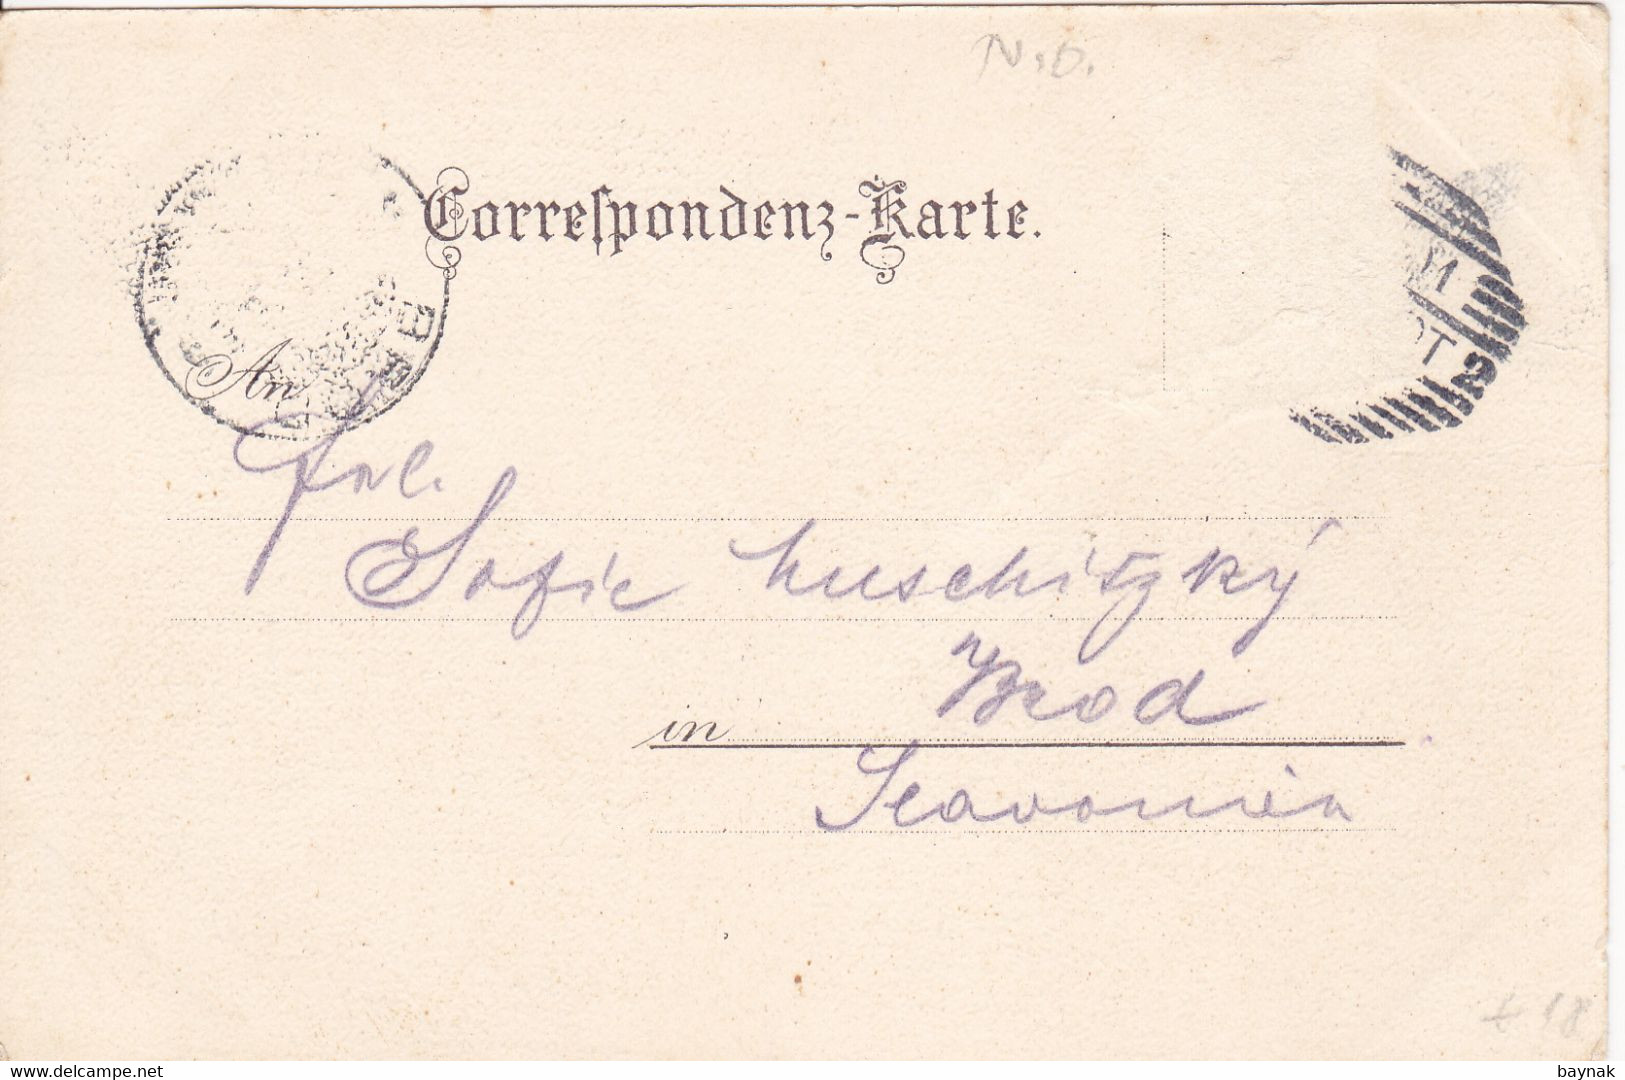 N.Ö.
Correſpondenz-Karte.
An
Frl.
Sofie Luschitzky
in Brod
Slavonien
18
delcampe.net
baynak